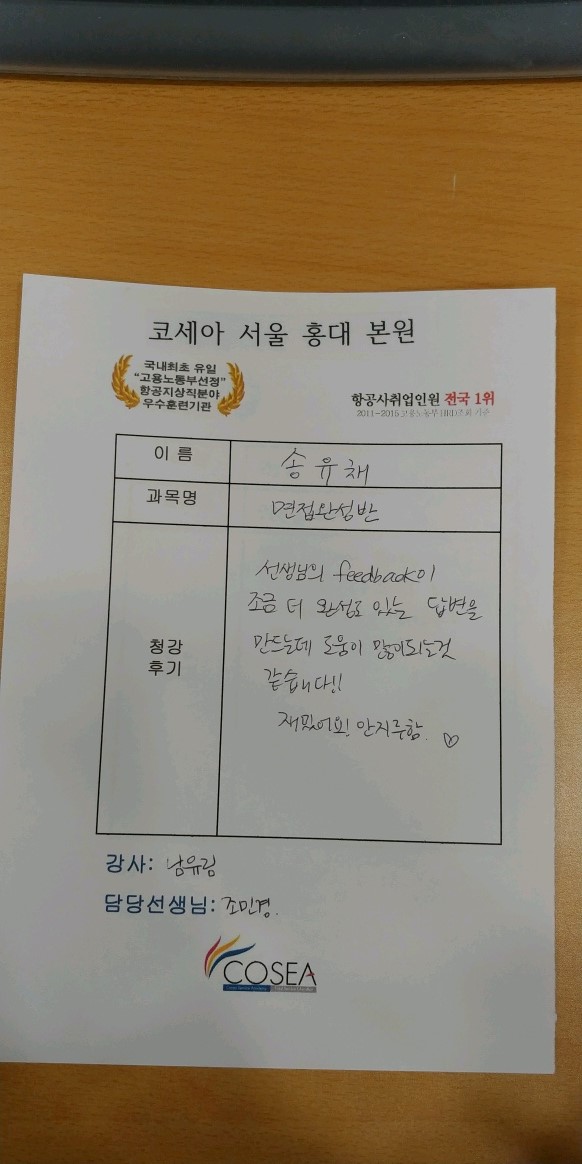 코세아 서울 홍대 본원
국내최초 유일
"고용노동부선정"
항공지상직분야
우수훈련기관
항공사취업인원 전국 1위
2011~2015 고용노동부 HRD조회 기준
이 름
송유채
과목명
면접완성반
청강
후기
선생님의 feedback이
조금 더 완성도 있는 답변을
만드는데 도움이 많이되는것
같습니다!!
재밌어요! 안지루함. ♡
강사: 남유림
담당선생님: 조민경.
COSEA